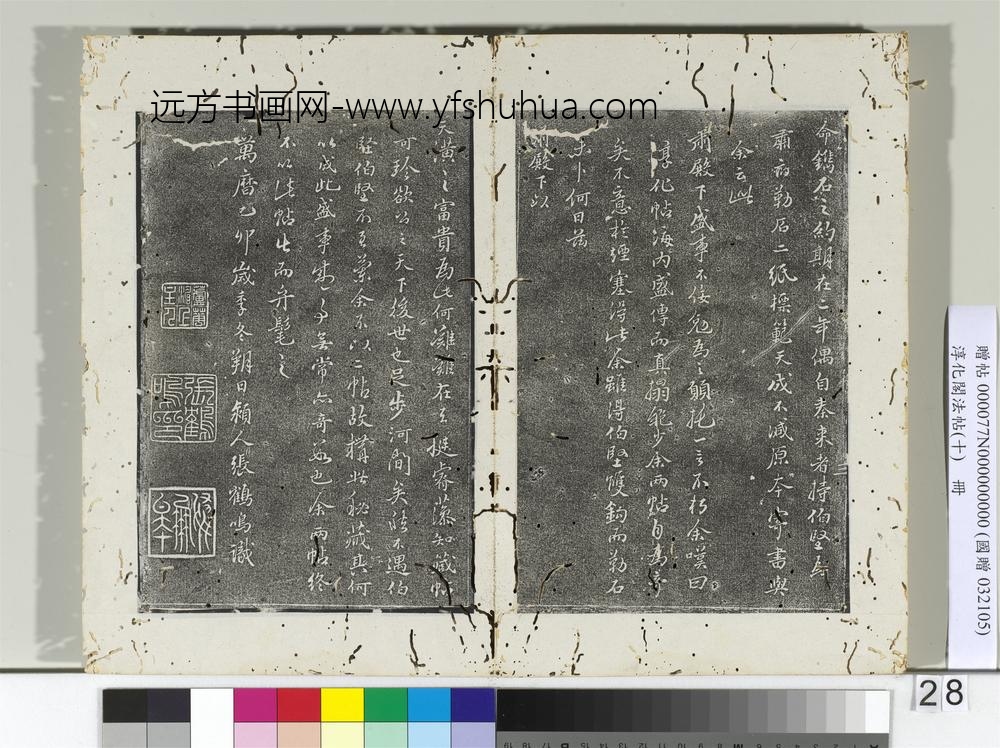 远方书画网-www.yfshuhua.com
命鐫石之約期在二年偶自秦來者持伯堅與
肅府勒石二紙摸範天成不減原本字書與
余云此
肅殿下盛事不佞勉為之願托一言不朽余嘆曰
淳化帖海內盛傳而真搨絕少余兩帖自為
矣不意於煙塞得此余雖得伯堅雙鉤而勒石
未卜何日茲
肅殿下以
天潢之富貴為此何難難在玄挺睿藻知藏帖
可珍欲公之天下後世也足步河間矣然不遇伯
堅伯堅不至蘭余不以二帖故搆此秘藏其何
以成此盛事寧予無常亦奇數也余兩帖終
不以此帖出而弁髦之
萬曆乙卯歲季冬朔日潁人張鶴鳴識
張鶴鳴印
贈帖 000077N000000000 (國贈 032105)
淳化閣法帖(十) 冊
28